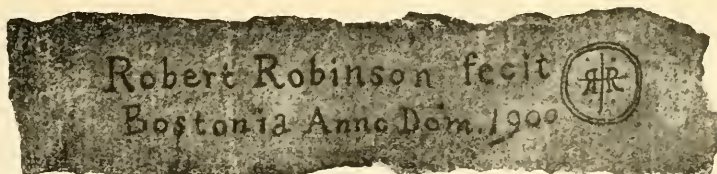 Robert Robinson fecit
Bostonia Anno Dom. 1900
RR